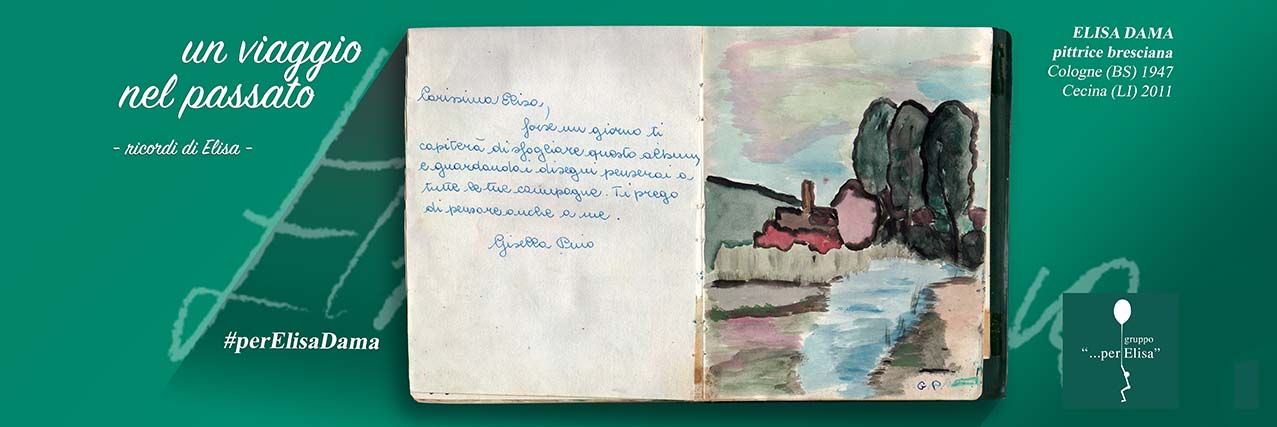 un viaggio
nel passato
- ricordi di Elisa -
#perElisaDama
Carissima Elisa,
forse un giorno ti
capiterà di sfogliare questo album,
e guardando i disegni penserai a
tutte le tue compagne. Ti prego
di pensare anche a me.
Gisella
G.P.
ELISA DAMA
pittrice bresciana
Cologne (BS) 1947
Cecina (LI) 2011
gruppo
“...per Elisa”